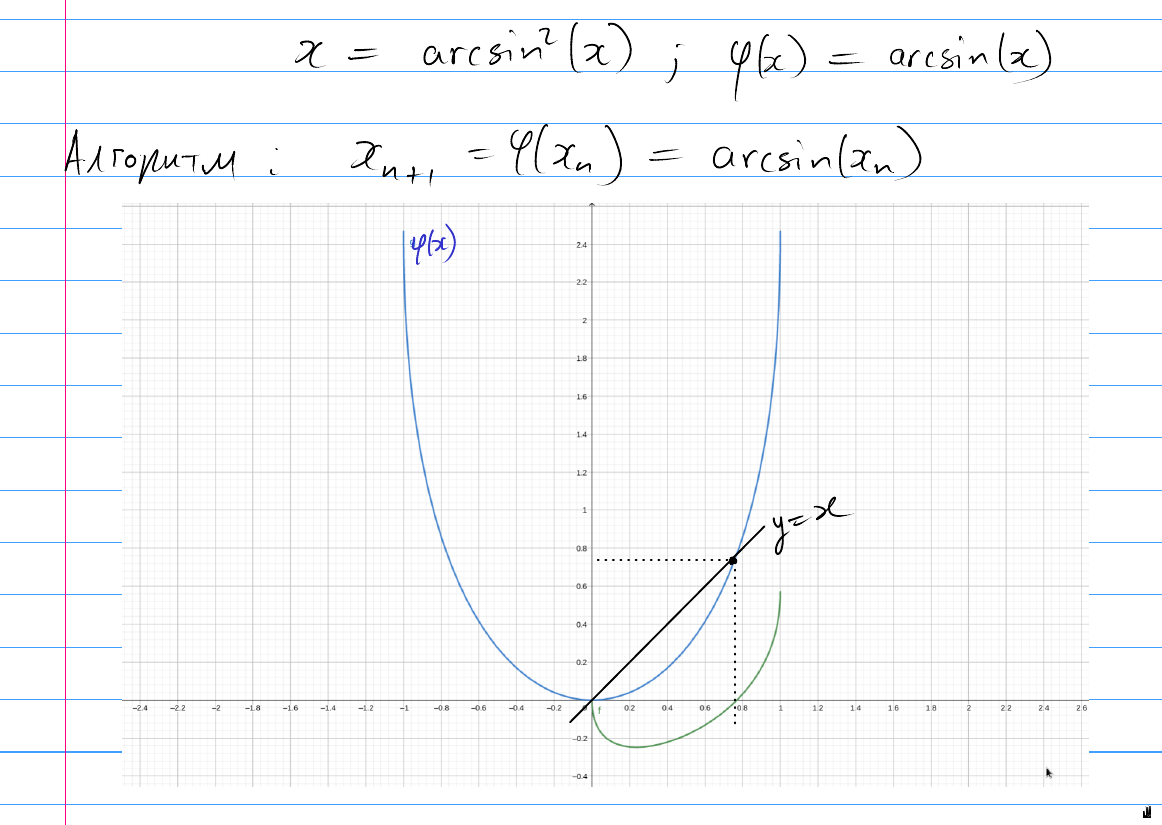 x = arcsin²(x) ; φ(x) = arcsin(x)
Алгоритм : xₙ₊₁ = φ(xₙ) = arcsin(xₙ)
φ(x)
2.4
2.2
2
1.8
1.6
1.4
1.2
1
y=x
0.8
0.6
0.4
0.2
−2.4 −2.2 −2 −1.8 −1.6 −1.4 −1.2 −1 −0.8 −0.6 −0.4 −0.2 0 f 0.2 0.4 0.6 0.8 1 1.2 1.4 1.6 1.8 2 2.2 2.4 2.6
−0.2
−0.4